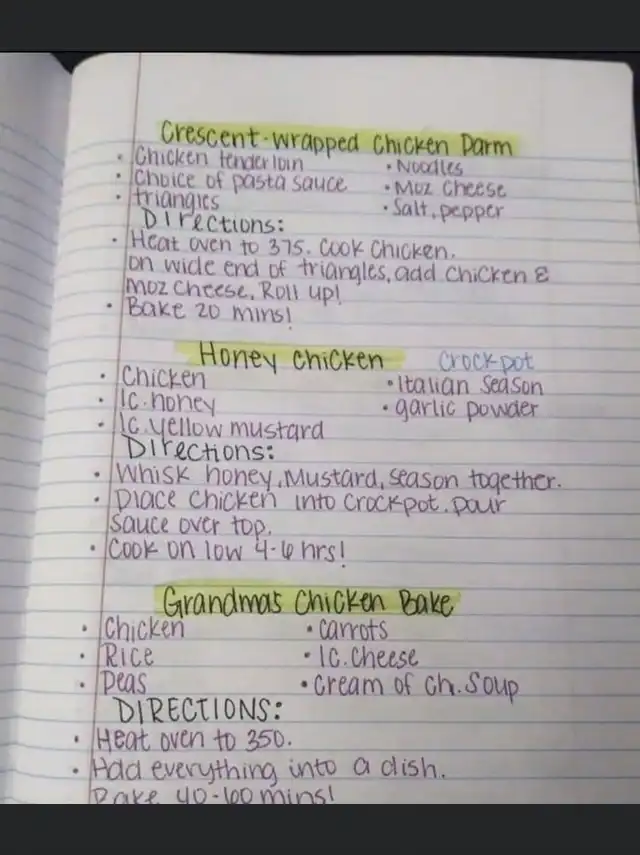 Crescent-wrapped Chicken Parm
• Chicken tenderloin • Noodles
• Choice of pasta sauce • Moz Cheese
• triangles • Salt, pepper
Directions:
• Heat oven to 375. Cook Chicken.
on wide end of triangles, add chicken &
Moz cheese. Roll up!
• Bake 20 mins!
Honey Chicken Crockpot
• Chicken • Italian Season
• 1c. honey • garlic powder
• 1c. yellow mustard
Directions:
• Whisk honey, Mustard, season together.
• Place Chicken into Crockpot. pour
sauce over top.
• Cook on low 4-6 hrs!
Grandmas Chicken Bake
• Chicken • carrots
• Rice • 1c. Cheese
• Peas • Cream of Ch. Soup
DIRECTIONS:
• Heat oven to 350.
• Add everything into a dish.
Bake 40-60 mins!